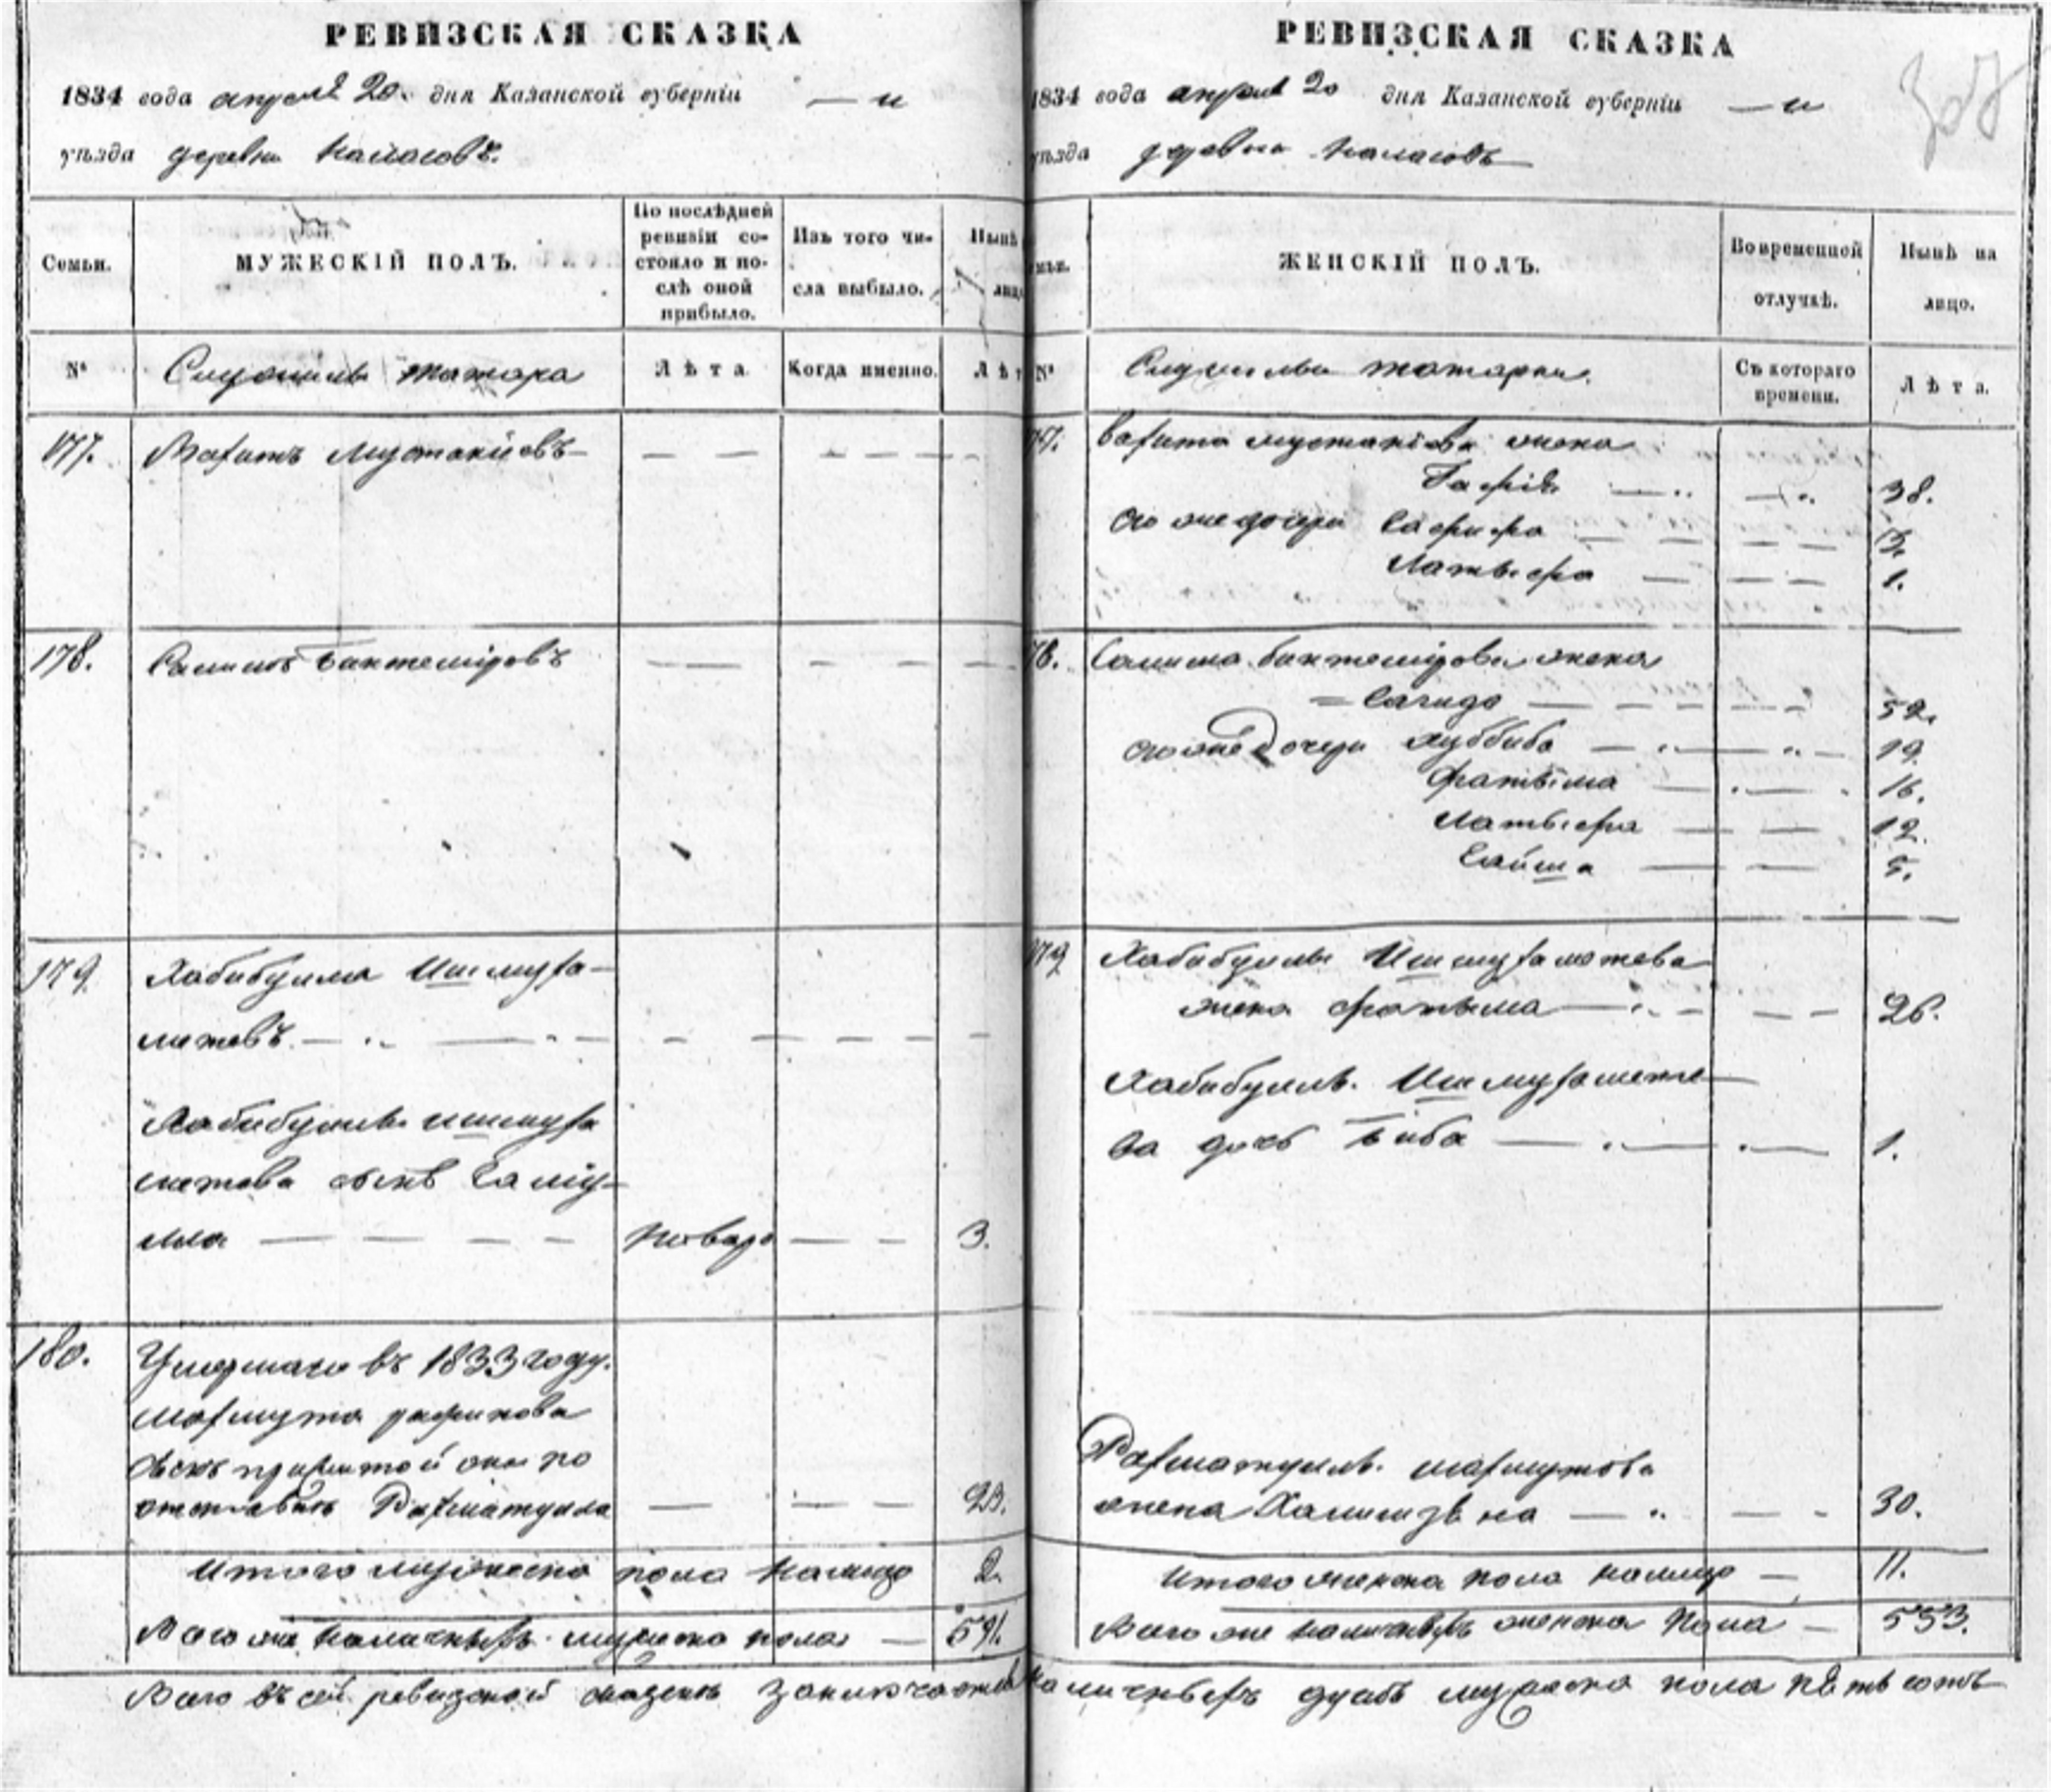 РЕВИЗСКАЯ СКАЗКА
1834 года апреля 20. дня Казанской губерніи — и
уѣзда деревни
Семьи.
МУЖЕСКІЙ ПОЛЪ.
По послѣдней ревизіи состояло и послѣ оной прибыло.
Изъ того числа выбыло.
Нынѣ лицо
№
Служилыя татара
Лѣта
Когда именно.
Лѣт
177. Вахитъ Мустакіевъ
178. Салимъ Бактеміровъ
179. Хабибулла Ишмуха-
метевъ
Хабибуллы Ишмуха
метева сынъ Га
лла 3.
180. Умершаго въ 1833 году.
Махмута рафикова
сынъ
Рахматулла 23.
Итого мужеска пола налицо 2.
Всего же наличныхъ мужеска пола — 591.
РЕВИЗСКАЯ СКАЗКА
307
1834 года апреля 20 дня Казанской губерніи — и
уѣзда деревни
ЖЕНСКІЙ ПОЛЪ.
Во временной отлучкѣ.
Нынѣ на лицо.
№
Служилыя татарки.
Съ котораго времени.
Лѣта.
77. Вахита мустакіева жена
38.
его же дочери
1.
78. Салима бактемірова жена
Сагида
его же дочери Хуббиба 19.
Фатыма 16.
Латыфа 12.
5.
179 Хабибуллы Ишмухаметева
жена Фатыма 26.
Хабибуллы Ишмухамете
ва дочь Биба 1.
Рахматуллы Махмутова
жена 30.
Итого женска пола налицо — 11.
Всего же наличныхъ женска пола — 553.
Всего въ сей ревизской сказкѣ заключается наличныхъ душъ мужеска пола пять сотъ